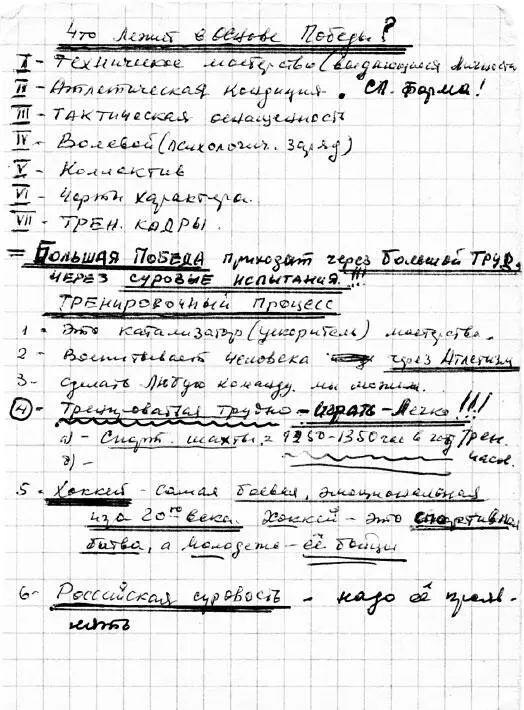 Что лежит в основе Победы?
I - Техническое мастерство (выдающиеся личности
II - Атлетическая кондиция. СП. Форма!
III - ТАКТИЧЕСКАЯ оснащенность
IV - Волевой (психологич. заряд)
V - Коллектив
VI - Черты характера.
VII - ТРЕН. КАДРЫ.
= БОЛЬШАЯ ПОБЕДА приходит через БОЛЬШОЙ ТРУД,
ЧЕРЕЗ СУРОВЫЕ ИСПЫТАНИЯ!!!
ТРЕНИРОВОЧНЫЙ ПРОЦЕСС
1 - Это катализатор (ускоритель) мастерства.
2 - Воспитывает человека через Атлетизм
3 - сделать Любую команду мы можем.
4 - Тренироваться трудно - играть - легко!!!
а) - Спорт. шахты, 1350 час в год Трен.
часов.
б) -
5 - Хоккей - самая боевая, эмоциональная
из 20го века. Хоккей - это спортивная
битва, а молодежь - её бойцы
6 - Российская суровость - надо её прояв-
лять